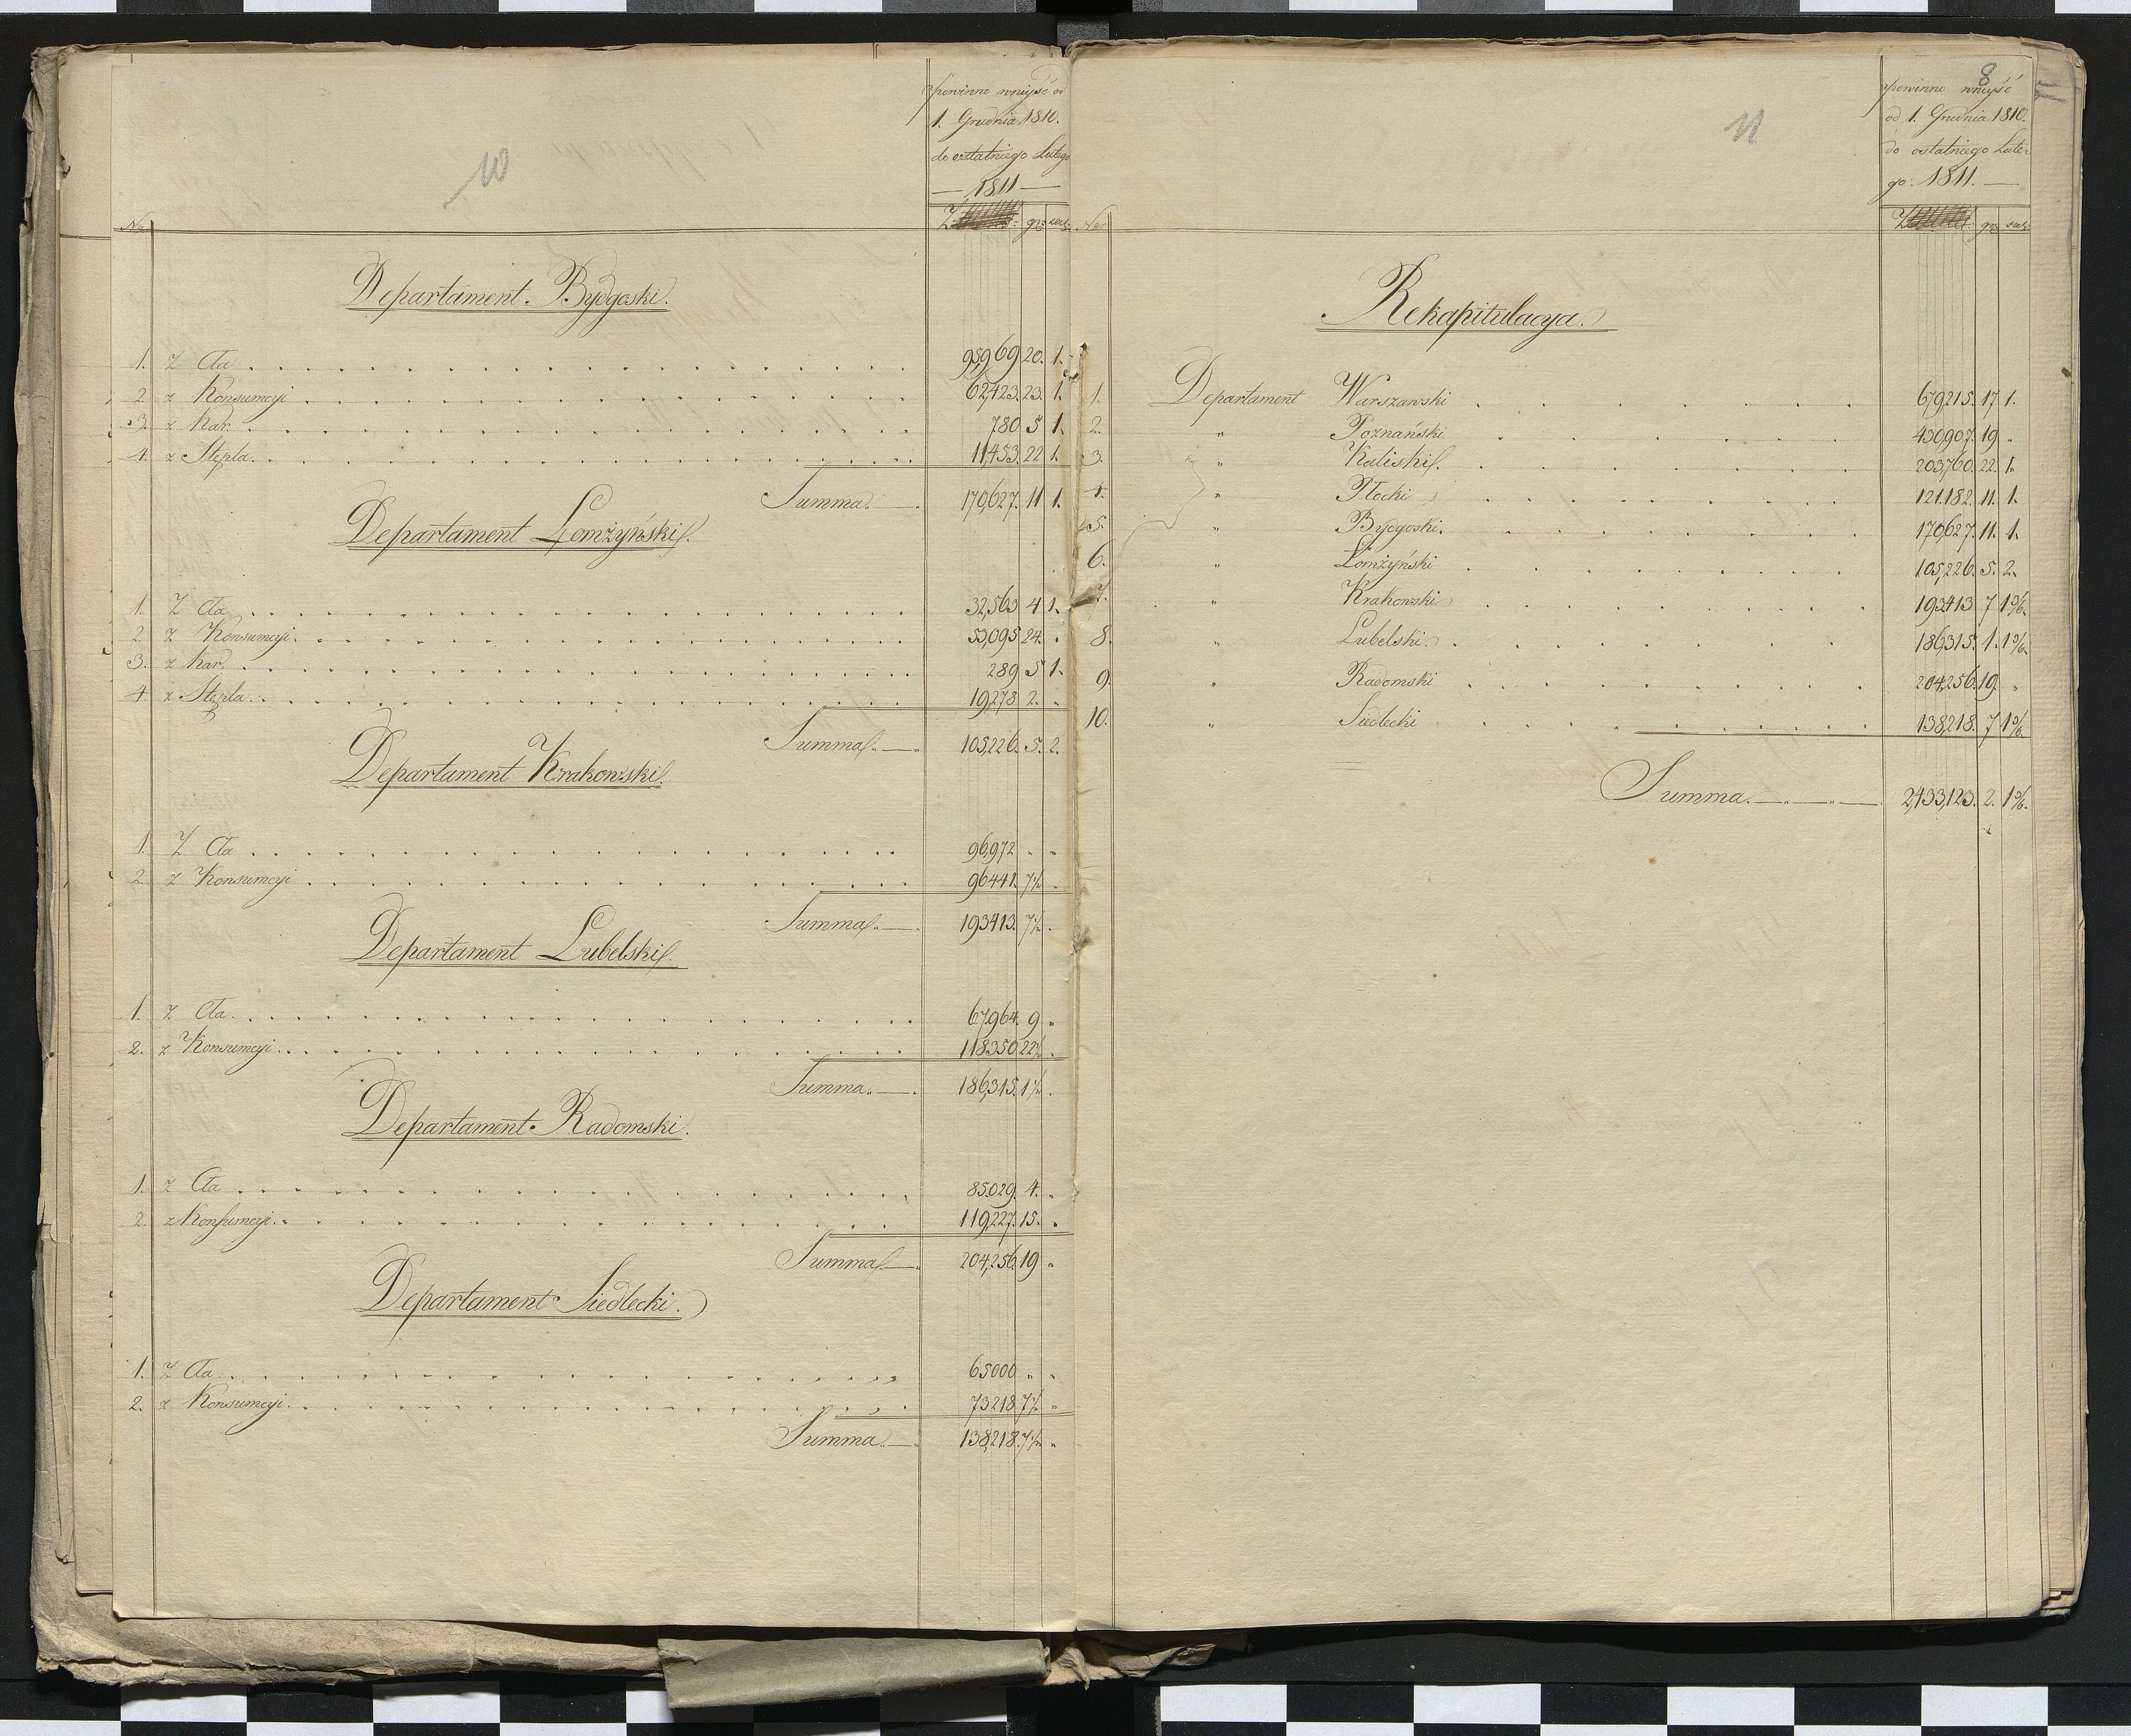 10
powinno wniyść od
1. Grudnia 1810.
do ostatniego Lutego
— 1811 —
No Z gr: szel:
Departament Bydgoski.
1. Z Cła 95,969 20. 1.
2. z Konsumcyi 62,423. 23. 1.
3. z Kar. 780 5 1.
4. z Stępla. 11,453. 22 1.
Summa. 170,627. 11 1.
Departament Łomżyński.
1. Z Cła 32,563 4 1.
2 z Konsumcyi. 53,095 24. "
3. z Kar. 289 5 1.
4. z Stępla. 19,278 2. "
Summa. 105,226. 5. 2.
Departament Krakowski.
1. Z Cła 96,972 " "
2 z Konsumcyi 96441. 7½ "
Summa. 193413. 7½ "
Departament Lubelski.
1. z Cła. 67,964. 9 "
2. z Konsumcyi. 118350 22½ "
Summa. 186,315. 1½ "
Departament Radomski.
1. z Cła 85,029. 4. "
2. z Konsumcyi. 119,227. 15. "
Summa. 204,256 19 "
Departament Siedlecki.
1. Z Cła. 65000 " "
2. z Konsumcyi. 73218 7½ "
Summa. 138,218. 7½ "
8
11
powinno wniyść
od 1. Grudnia 1810.
do ostatniego Lute-
go: 1811. —
No Z gr szel:
Rekapitulacya.
1. Departament Warszawski 679,215. 17 1.
2. " Poznański 430,907. 19 "
3. " Kaliski. 203,760. 22. 1.
4. " Płocki 121,182. 11. 1.
5. " Bydgoski. 170,627. 11. 1.
6. " Łomżyński 105,226. 5. 2.
7. " Krakowski 193413 7 1 3/6.
8. " Lubelski. 186,315. 1. 1 3/6.
9. " Radomski 204,256. 19. "
10. " Siedlecki 138,218. 7 1 3/6.
Summa. 2,433,123. 2. 1 3/6.